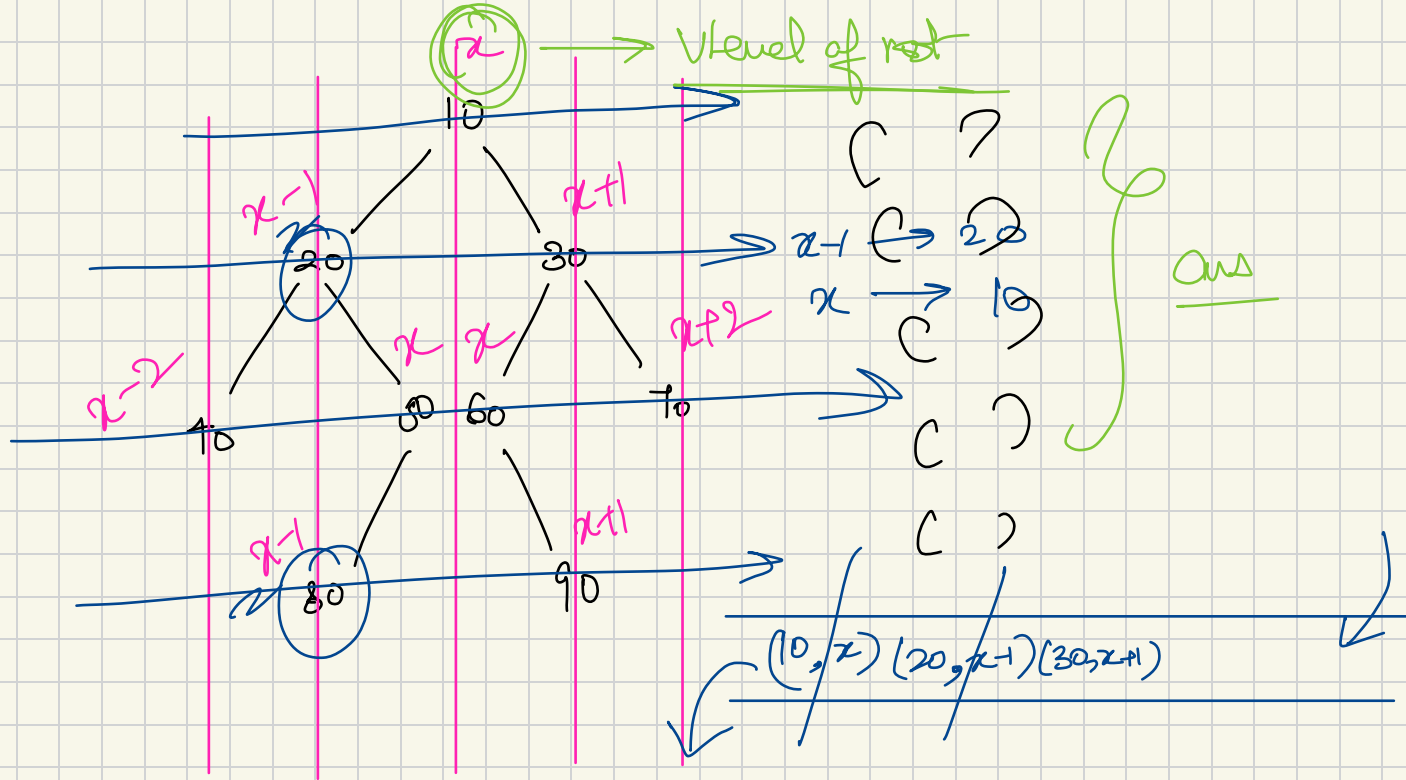 x → VLevel of root
10
x-1 x+1
20 30 x-1 → 20
x → 10
x-2 x x x+2 ans
40 50 60 70
x-1 x+1
80 90
(10, x) (20, x-1) (30, x+1)